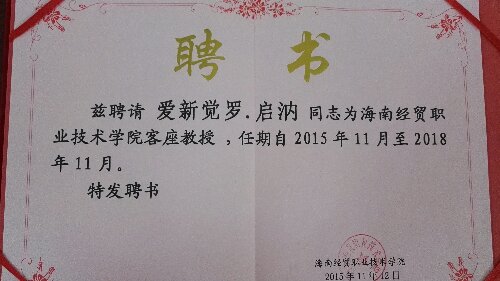 聘书
兹聘请 爱新觉罗.启汭 同志为海南经贸职
业技术学院客座教授，任期自2015年11月至2018
年11月。
特发聘书
海南经贸职业技术学院
2015年11月12日